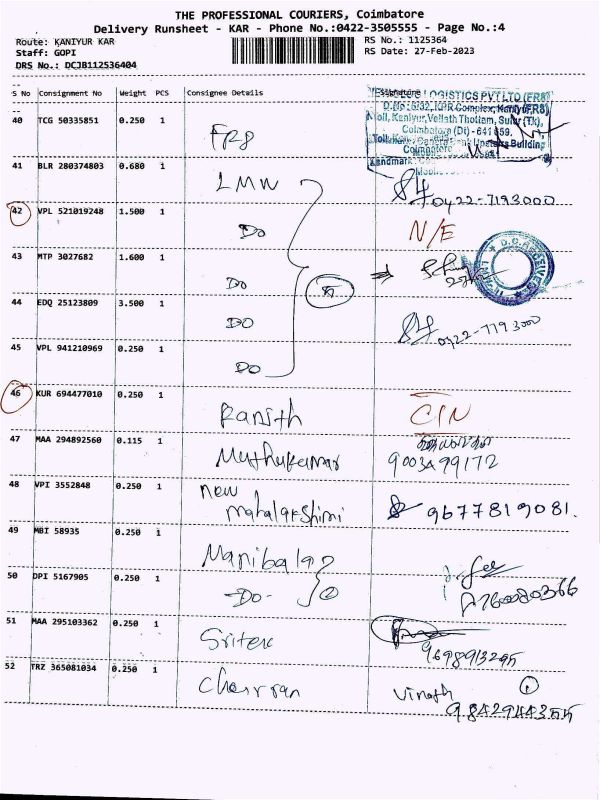 THE PROFESSIONAL COURIERS, Coimbatore
Delivery Runsheet - KAR - Phone No.:0422-3505555 - Page No.:4
Route: KANIYUR KAR RS No.: 1125364
Staff: GOPI RS Date: 27-Feb-2023
DRS No.: DCJB112536404
S No Consignment No Weight PCS Consignee Details
LOGISTICS PVT LTD (FR8)
D.No: 5/32, KPR Complex, Kaniyur
Toll, Kaniyur, Vellath Thottam, Sulur (Tk),
Coimbatore (Dt) - 641 659.
40 TCG 50335851 0.250 1 FR8
41 BLR 280374803 0.680 1 LMW 0422-7193000
42 VPL 521019248 1.500 1 Do N/E
43 MTP 3027682 1.600 1 Do
44 EDQ 25123809 3.500 1 Do 0422-7193000
45 VPL 941210969 0.250 1 Do
46 KUR 694477010 0.250 1 Ranith C/N
47 MAA 294892560 0.115 1 Muthukumar
48 VPI 3552848 0.250 1 new mahalakshimi 9677819081.
49 MBI 58935 0.250 1 Manibala
50 DPI 5167905 0.250 1 -Do- 2
51 MAA 295103362 0.250 1 Sritek
52 TRZ 365081034 0.250 1 Vinoth 1